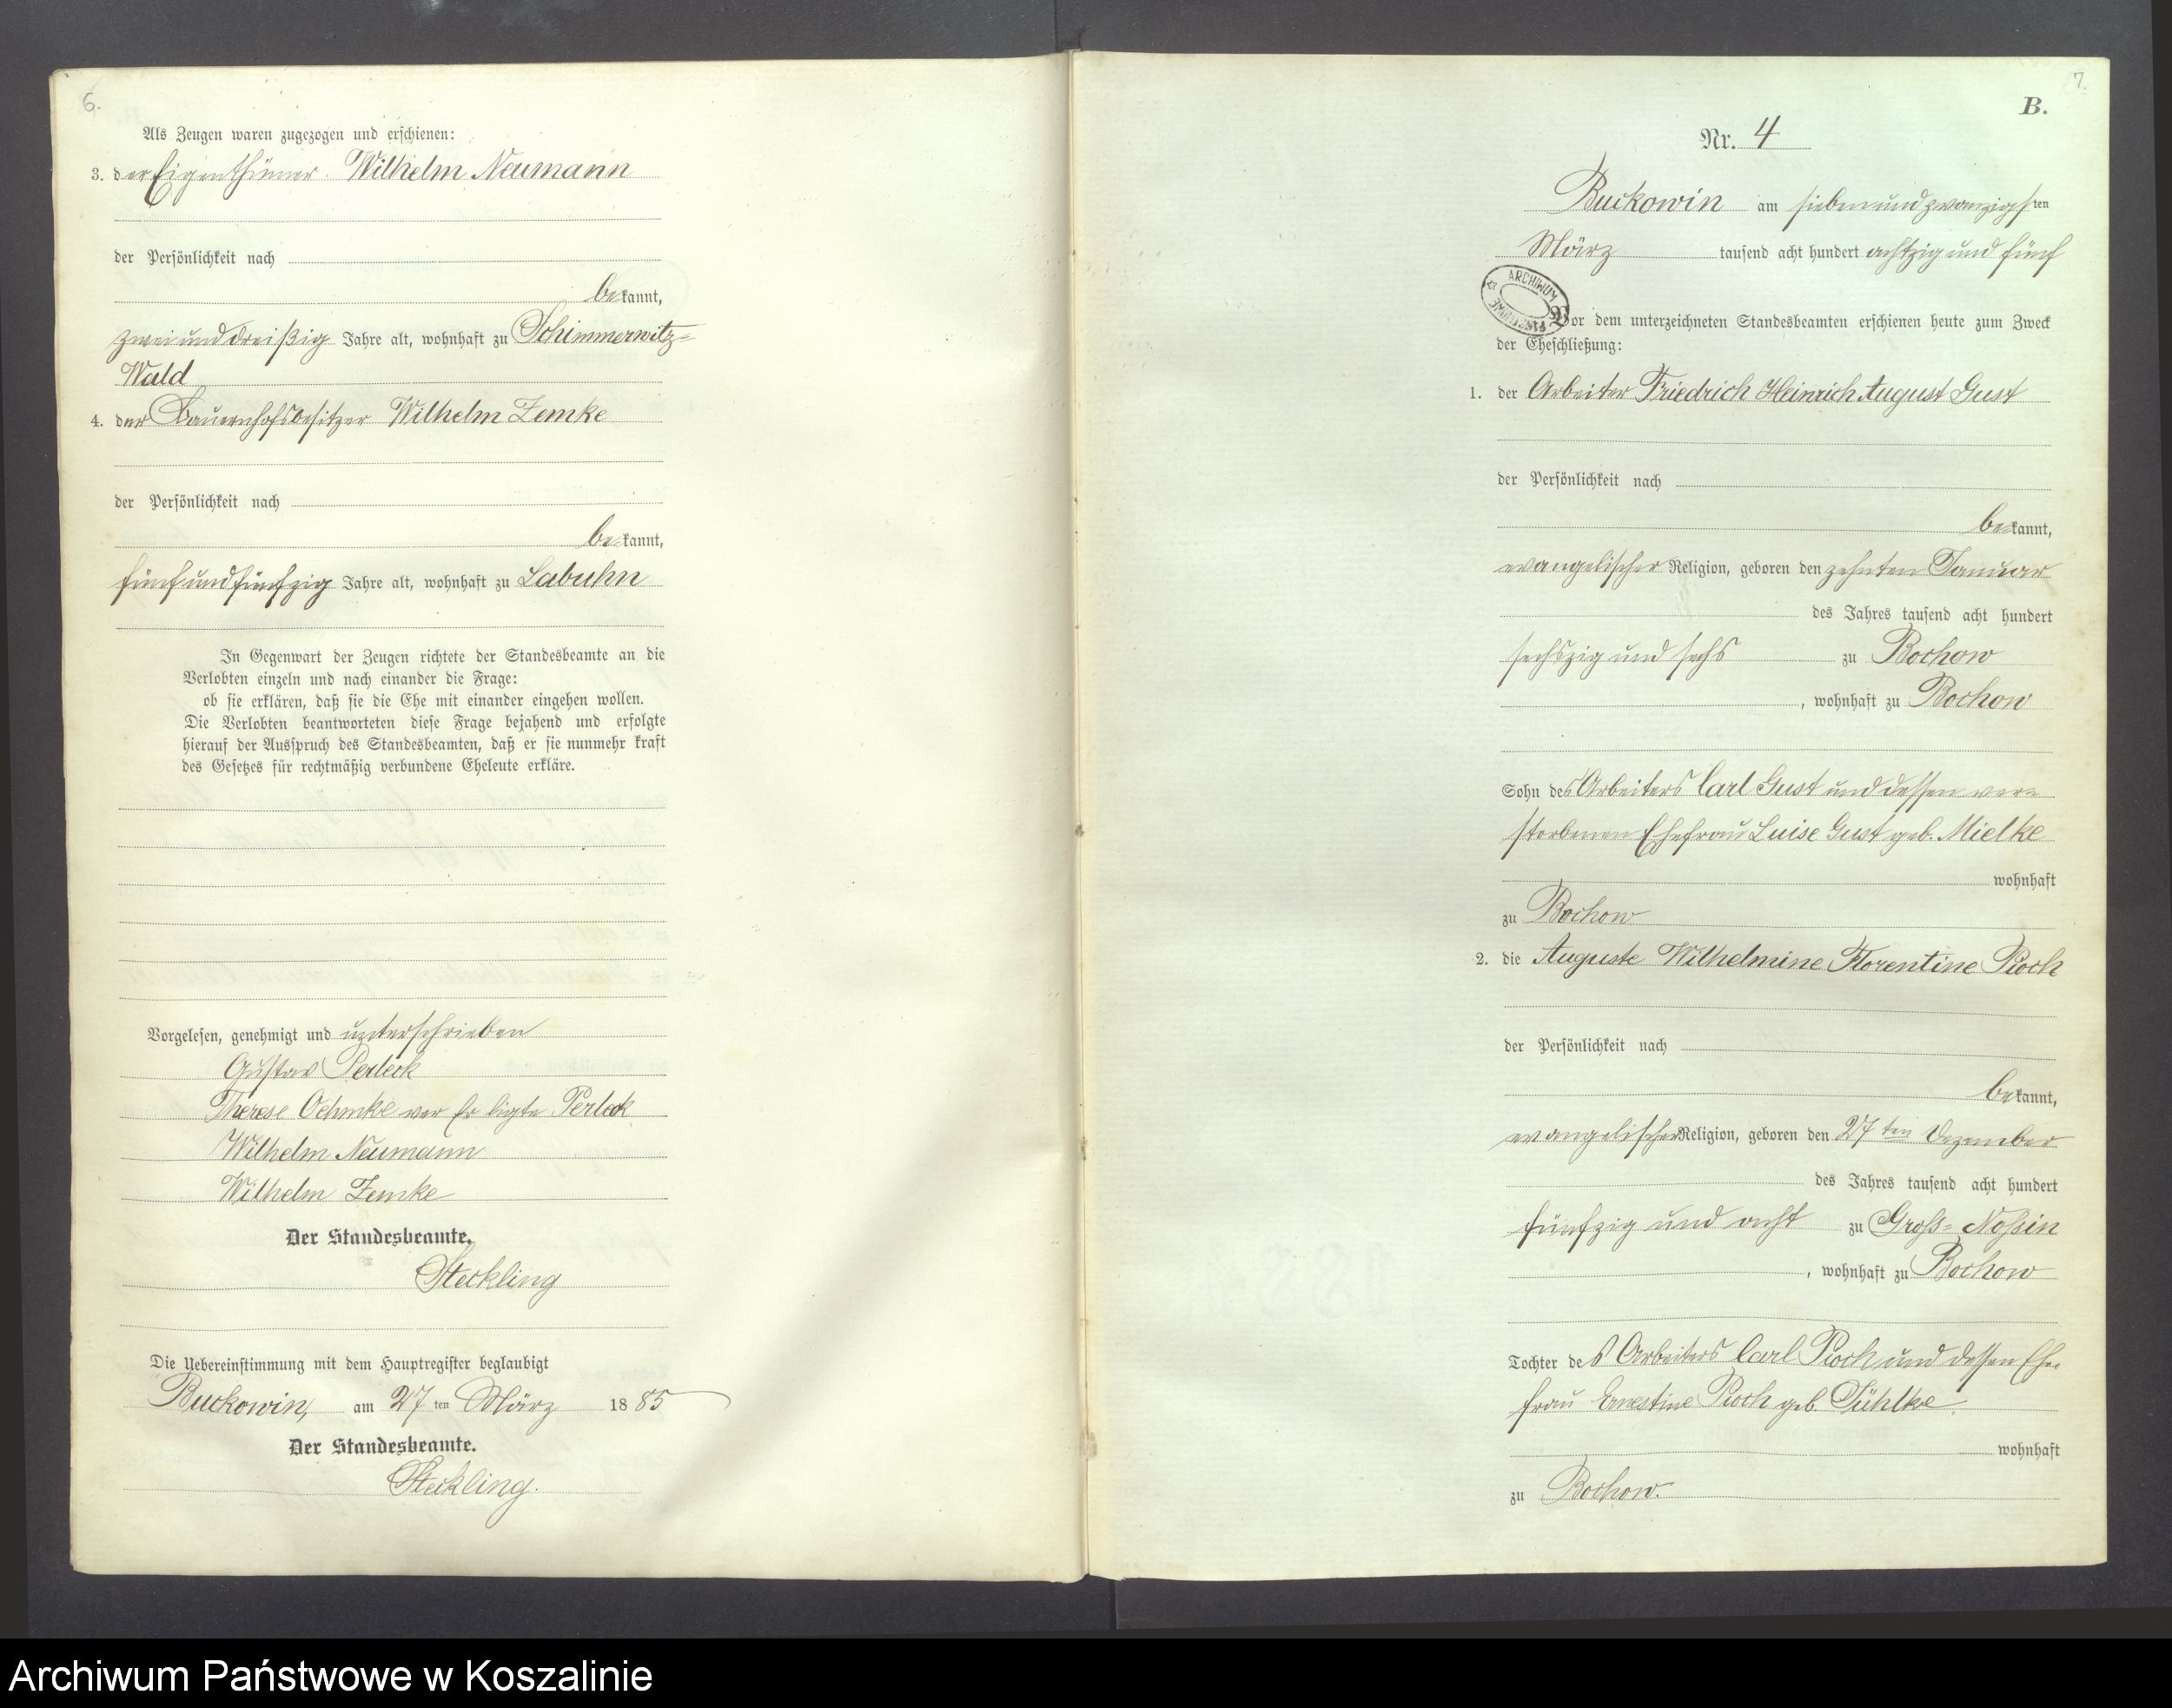 6.
Als Zeugen waren zugezogen und erschienen:
3. der Eigenthümer Wilhelm Neumann
der Persönlichkeit nach
bekannt,
zwei und dreißig Jahre alt, wohnhaft zu Schimmerwitz-
Wald
4. der Bauernhofsbesitzer Wilhelm Zemke
der Persönlichkeit nach
bekannt,
fünf und fünfzig Jahre alt, wohnhaft zu Labuhn
In Gegenwart der Zeugen richtete der Standesbeamte an die
Verlobten einzeln und nach einander die Frage:
ob sie erklären, daß sie die Ehe mit einander eingehen wollen.
Die Verlobten beantworteten diese Frage bejahend und erfolgte
hierauf der Ausspruch des Standesbeamten, daß er sie nunmehr kraft
des Gesetzes für rechtmäßig verbundene Eheleute erkläre.
Vorgelesen, genehmigt und unterschrieben
Gustav Perleck
Therese Oehmke verehligte Perleck
Wilhelm Neumann
Wilhelm Zemke
Der Standesbeamte.
Steckling
Die Uebereinstimmung mit dem Hauptregister beglaubigt
Buckowin, am 27 ten März 1885
Der Standesbeamte.
Steckling.
7.
B.
Nr. 4
Buckowin am sieben und zwanzigsten
März tausend acht hundert achtzig und fünf
ARCHIWUM PAŃSTWOWE
Vor dem unterzeichneten Standesbeamten erschienen heute zum Zweck
der Eheschließung:
1. der Arbeiter Friedrich Heinrich August Gust
der Persönlichkeit nach
bekannt,
evangelischer Religion, geboren den zehnten Januar
des Jahres tausend acht hundert
sechszig und sechs zu Bochow
, wohnhaft zu Bochow
Sohn des Arbeiters Carl Gust und dessen ver-
storbenen Ehefrau Luise Gust geb. Mielke
wohnhaft
zu Bochow
2. die Auguste Wilhelmine Florentine Pioch
der Persönlichkeit nach
bekannt,
evangelischer Religion, geboren den 27 ten Dezember
des Jahres tausend acht hundert
fünfzig und acht zu Gross-Nossin
, wohnhaft zu Bochow
Tochter des Arbeiters Carl Pioch und dessen Ehe-
frau Ernestine Pioch geb. Sühlke
wohnhaft
zu Bochow.
Archiwum Państwowe w Koszalinie